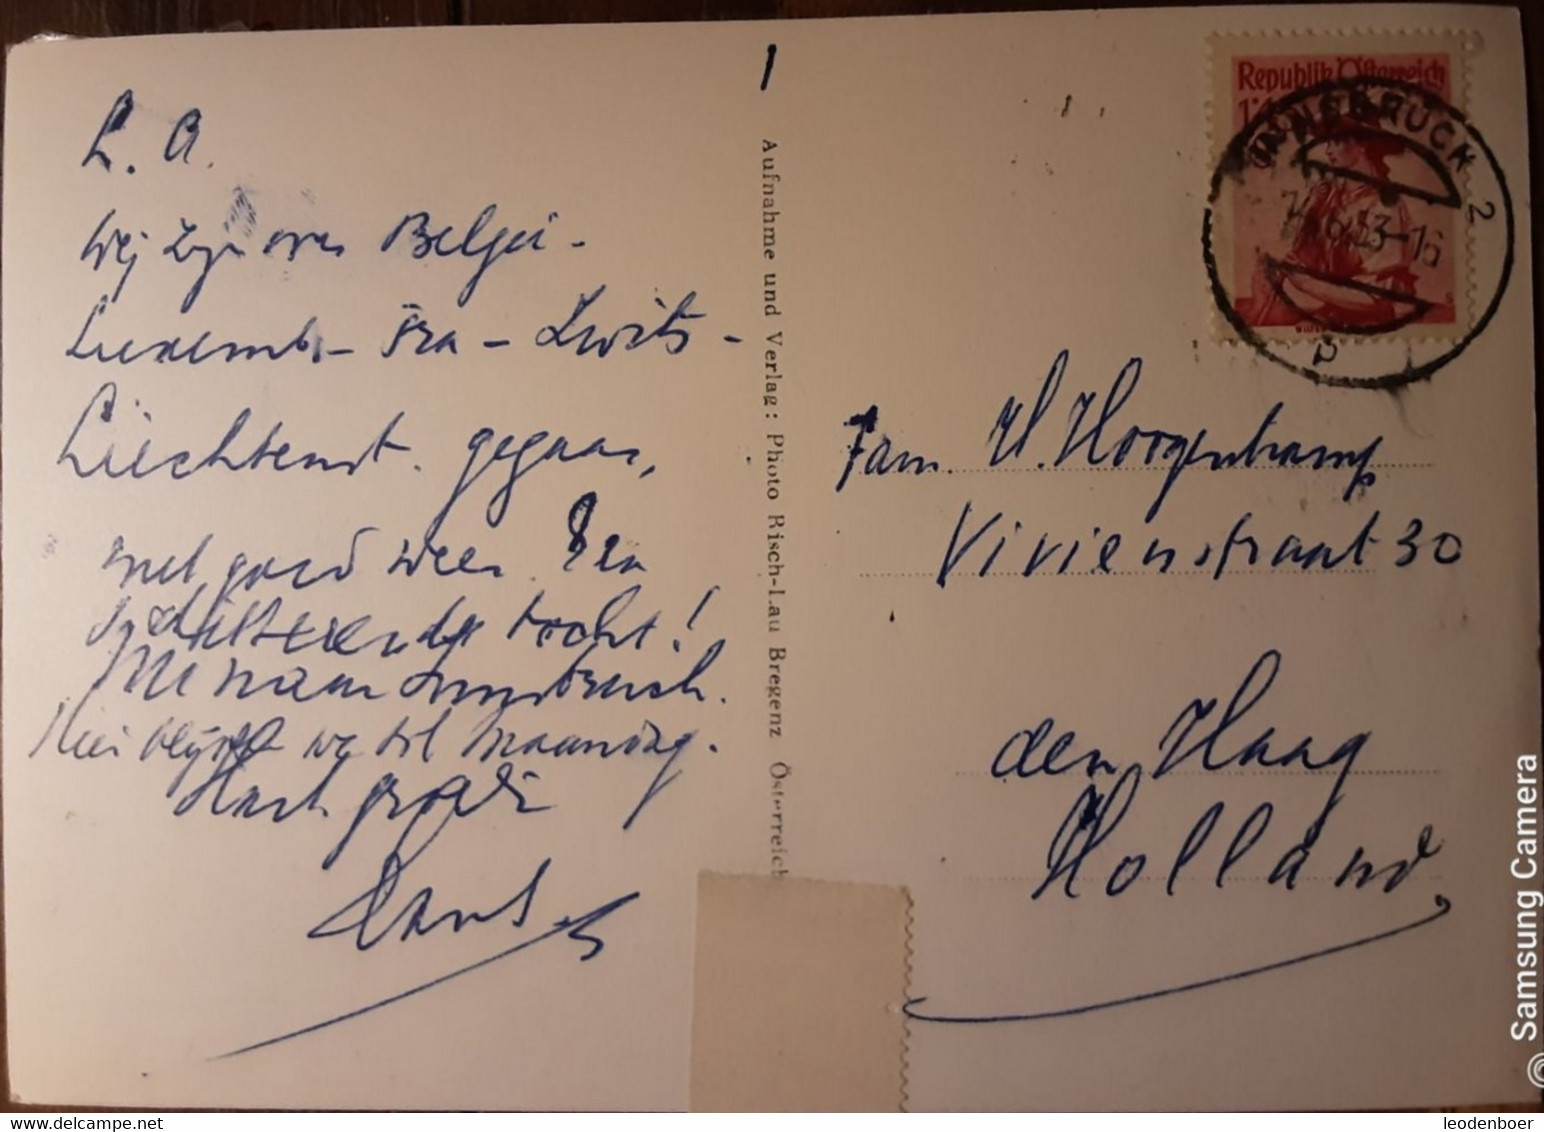 L. A.
Wij zijn over België -
Luxemb. - Fra - Zwits -
Liechtenst. gegaan,
met goed weer. Een
schitterende tocht!
Nu naar Innsbruck.
Hier blijven we tot Maandag.
Hart. groeten
Aufnahme und Verlag: Photo Risch-Lau Bregenz Österreich
Republik Österreich
INNSBRUCK 2
.6.53-16
Fam. H. Hoogenkamp
Vivienstraat 30
den Haag
Holland
© Samsung Camera
leodenboer